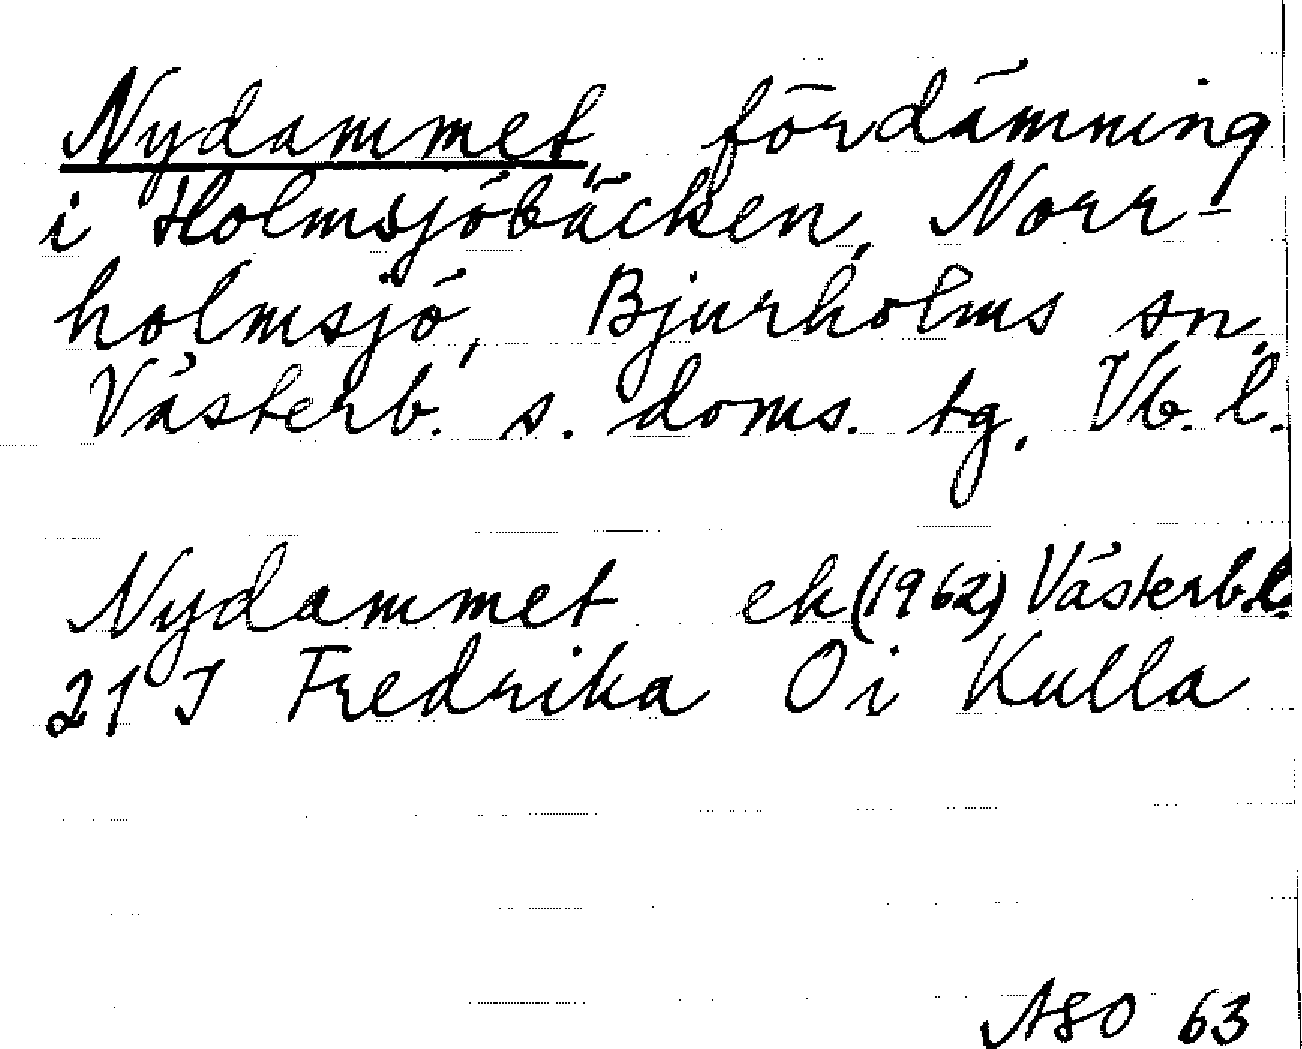 Nydammet, fördämning
i Holmsjöbäcken, Norr-
holmsjö, Bjurholms sn,
Västerb. s. doms. tg. Vb. l.
Nydammet ek (1962) Västerb.l.
21 J Fredrika O i Kulla
ASO 63